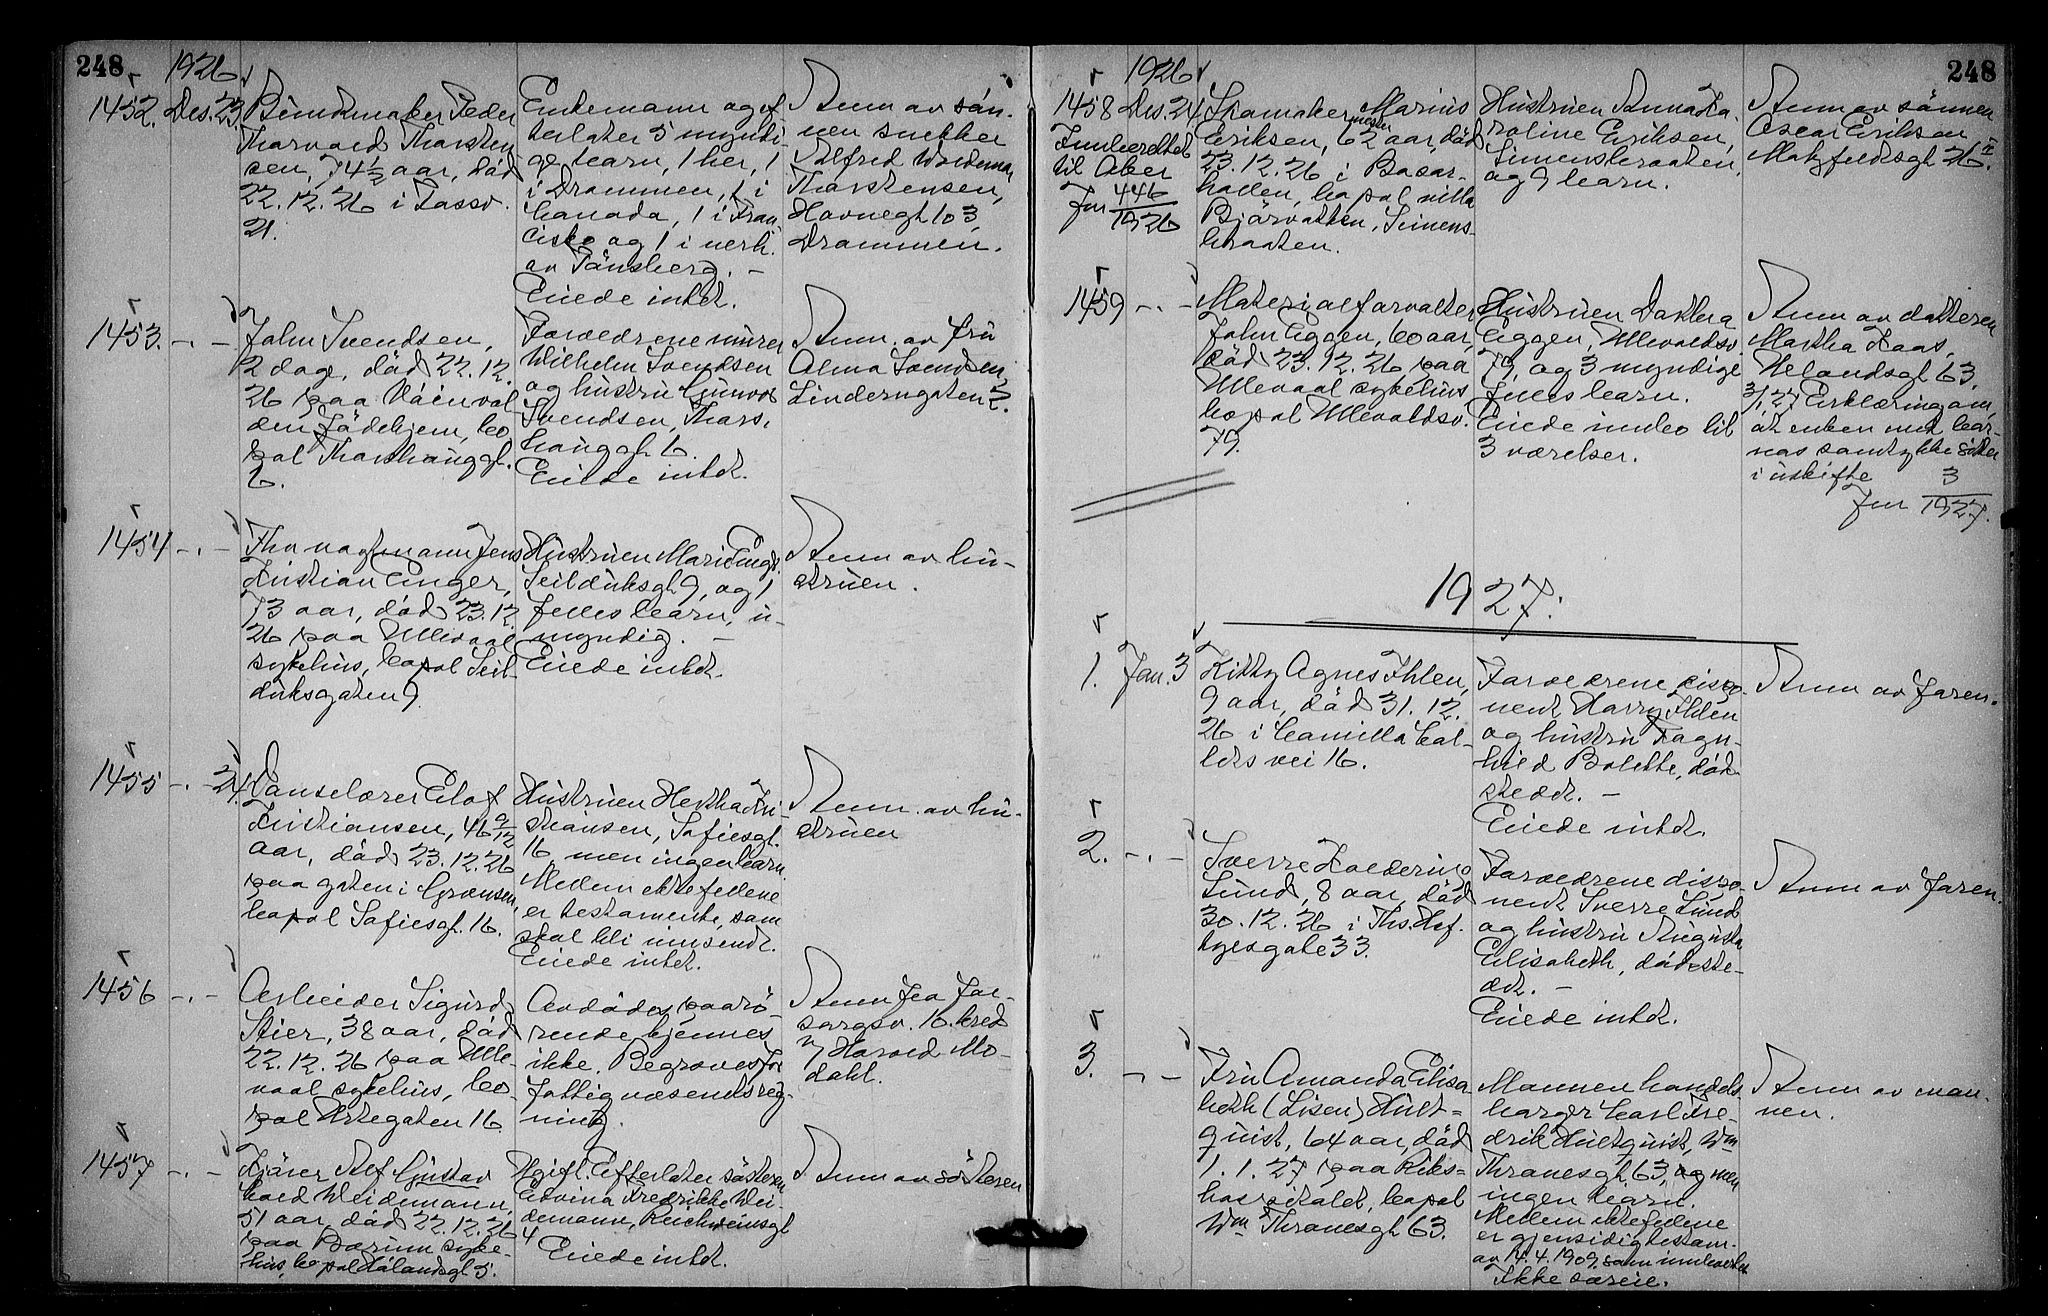 248
1926
1452. Des. 23.
Buntmaker Peder
Thorvald Thorsten
sen, 74 1/2 aar, död
22.12.26 i Fossv.
21.
Enkemann og ef-
terlater 5 myndi-
ge barn, 1 her, 1
i Drammen, 1 i
Canada, 1 i Fran
cisko og 1 i nerh.
av Tönsberg. -
Eiede intet.
Anm av sön-
nen snekker
Alfred Waldemar
Thorstensen,
Havnegt 103,
Drammen.
1453. -.-
John Svendsen,
2 dage, död 22.12.
26 paa
den Födehjem, bo
pal Thorshauggt.
6.
Foreldrene murer
Wilhelm Svendsen
og hustru Gunvor
Svendsen, Thors,
hauggt 6.
Eiede intet.
Anm. av fru
Alma Svendsen
Linderngaten 2.
1454 -.-
Fhv vogtmann Jens
Kristian Enger,
73 aar, död 23.12.
26 paa Ullevaal
sykehus, bopal Seil-
duksgaten 9
Hustruen Marie Enger
Seilduksgt 9, og 1
felles barn, u-
myndig. -
Eiede intet.
Anm av hu-
struen.
1455 -.- 24.
Danselærer Elof
Kristiansen, 46 9/12
aar, död 23.12.26
paa gaten i Grænsen,
bopal Sofiesgt. 16.
Hustruen Hertha Kri-
stiansen, Sofiesgt.
16, men ingen barn.
Mellem ektefellene
er testamente, som
skal bli innsendt.
Eiede intet.
Anm. av hu-
struen
1456 -.-
Arbeider Sigurd
Stier, 38 aar, död
22.12.26 paa Ulle-
vaal sykehus, bo-
pal Urtegaten 16.
Avdödes paarö-
rende kjennes
ikke. Begraves for
fattigvæsenets reg-
ning.
Anm fra For-
sorgsv. 16. kred
v/ Harald Mo-
dahl.
1457 -.-
Kjörer Alf Gustav
Weidemann,
51 aar, död 22.12.26
paa Bærum syke-
hus, bopal Hålandsgt 5.
Ugift. Efterlater sösteren
Edvina Fredrikke Wei-
demann, Reichweinsgt
4
Eiede intet.
Anm av sösteren
248
1926
1458 Des. 24
Innberettet
til Aker
Jnr 446/1926
Skomakermester Marius
Eriksen, 62 aar, död
23.12.26 i Basar-
hallen, bopal villa
Bjärvakken, Simens-
braaten.
Hustruen Anna Ka-
roline Eriksen,
Simensbraaten,
og 9 barn.
Anm av sönnen
Oscar Eriksen
26 II.
1459 -.-
Materialforvalter
John Eggen, 60 aar,
död 23.12.26 paa
Ullevaal sykehus
bopal Ullevaldsv.
79.
Hustruen Dorthea
Eggen, Ullevaldsv.
79, og 3 myndige
felles barn.
Eiede innbo til
3 værelser.
Anm av datteren
Martha Haas,
Helandsgt 63.
3/1 27 Erklæring om,
at enken med bar-
nas samtykke sitter
i uskifte
Jnr 3/1927.
1927.
1. Jan. 3
Kitty Agnes Ihlen,
9 aar, död 31.12.
26 i Camilla Col-
letts vei 16.
Foreldrene dispo-
nent Harry Ihlen
og hustru Ragn-
hild Bolette, död-
stedet. -
Eiede intet.
Anm av faren.
2. -.-
Sverre Koldering
Lund, 8 aar, död
30.12.26 i Ths. Hef-
tyesgate 33.
Foreldrene dispo-
nent Sverre Lund
og hustru Augusta
Elisabeth, dödste-
det. -
Eiede intet.
Anm av faren.
3. -.-
Fru Amanda Elisa
beth (Lisen) Hult-
quist, 64 aar, död
1.1.27 paa Riks-
hospitalet, bopal
Wm Thranesgt 63.
Mannen handels
borger Carl Fre-
drik Hultquist, Wm
Thranesgt. 63, og men
ingen barn.
Mellem ektefellene
er gjensidig testam.
av 14.4.1909, som innleveres
Ikke særeie.
Anm av man-
nen.